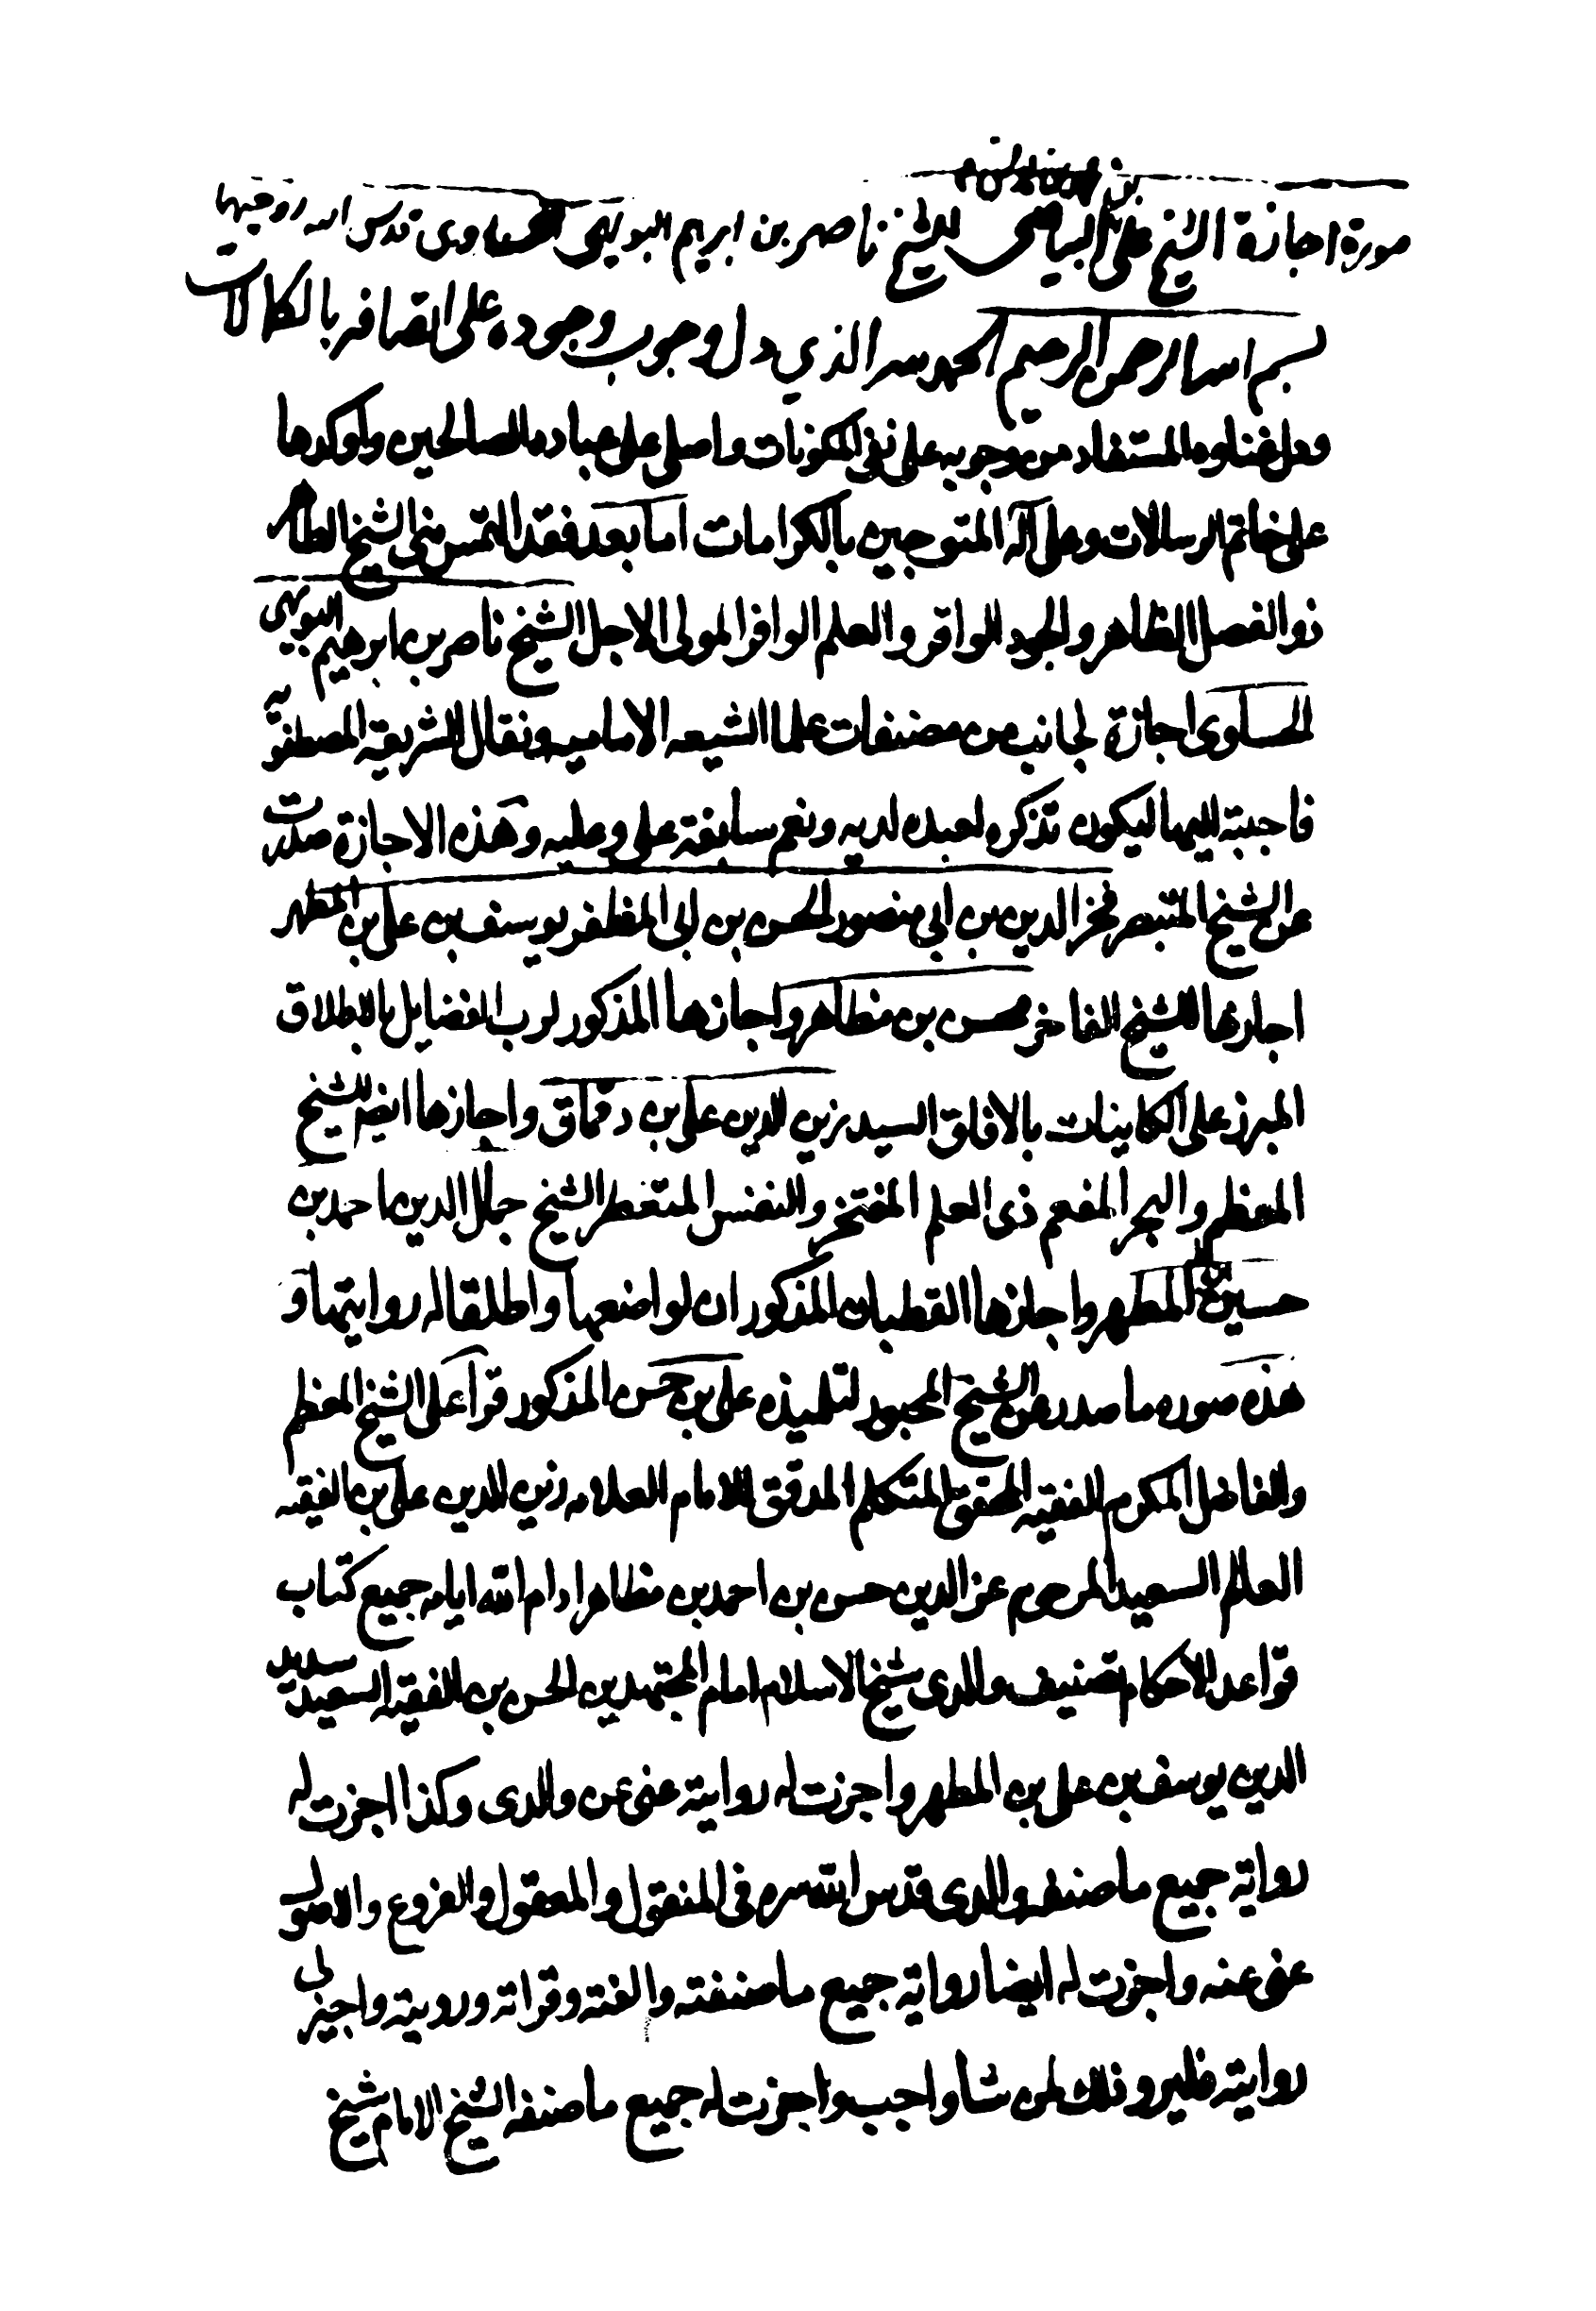 صورة اجازة الشيخ علي البياضي للشيخ ناصر بن ابرهيم البويهي قدس الله روحيهما
بسم الله الرحمن الرحيم الحمد لله الذي دل وجوب وجوده على اتصافه بالكمالات
من وجوبه على نفي المكونات واصلي على عباده الصالحين واوكدها
على خاتم الرسالات وعلى آله المتوجين بالكرامات اما بعد فقد التمس مني الشيخ الطاهر
ذو الفضل الظاهر والجود الواقر والعلم الوافر المولى الاجل الشيخ ناصر بن ابرهيم البويهي
اجازة لجانب من مصنفات علما الشيعه الاماميه ونقال الشريعة المصطفوية
فاجبته اليها ليكون تذكره لعبده لديه ونعم سابغة علي وعليه وهذه الاجازة صدرت
عن الشيخ المتبصر فخر الدين بن ابي منصور الحسن بن ابي المظفر يوسف بن علي بن المطهر
اجازها للشيخ الفاخر حسن بن مظاهر واجازها المذكور لرب الفضايل بالاطلاق
المبرز على الكاينات بالافاق السيد زين الدين علي بن دقماق واجازها ايضا للشيخ
المعظم والبحر المفعم ذي العلم المفتخر والنفس الشيخ جمال الدين احمد بن
حسين بن المطهر واجازها القطبان المذكوران لواضعها واطلقا له روايتها و
هذه صوره ما صدر عن الشيخ المحبور لتلميذه علي بن حسن المذكور قرا على الشيخ المعظم
والفاضل المكرم الفقيه المحقق المتكلم المدقق الامام العلامه زين الدين علي بن الفقيه
العالم السعيد المرحوم عز الدين حسن بن احمد بن مظاهر ادام الله ايامه جميع كتاب
قواعد الاحكام تصنيف والدي شيخ الاسلام امام المجتهدين الحسن بن الفقيه السعيد سديد
الدين يوسف بن علي بن المطهر واجزت له روايته عني عن والدي وكذا اجزت له
رواية جميع ما صنفه والدي قدس الله سره في المنقول والمعقول والفروع والاصول
عني عنه واجزت له ايضا رواية جميع ما صنفته والفته وقراته ورويته واجيز لي
روايته فليرو ذلك لمن شا واحب واجزت له جميع ما صنفه الشيخ الامام شيخ